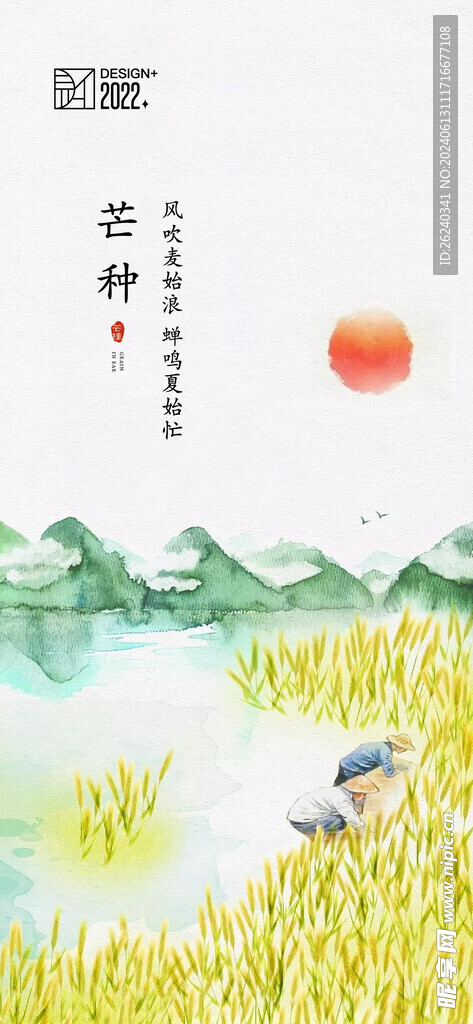 DESIGN+
2022
芒种
风吹麦始浪 蝉鸣夏始忙
芒種
GRAIN
IN EAR
ID:26240341 NO:20240613111716677108
昵享网 www.nipic.cn